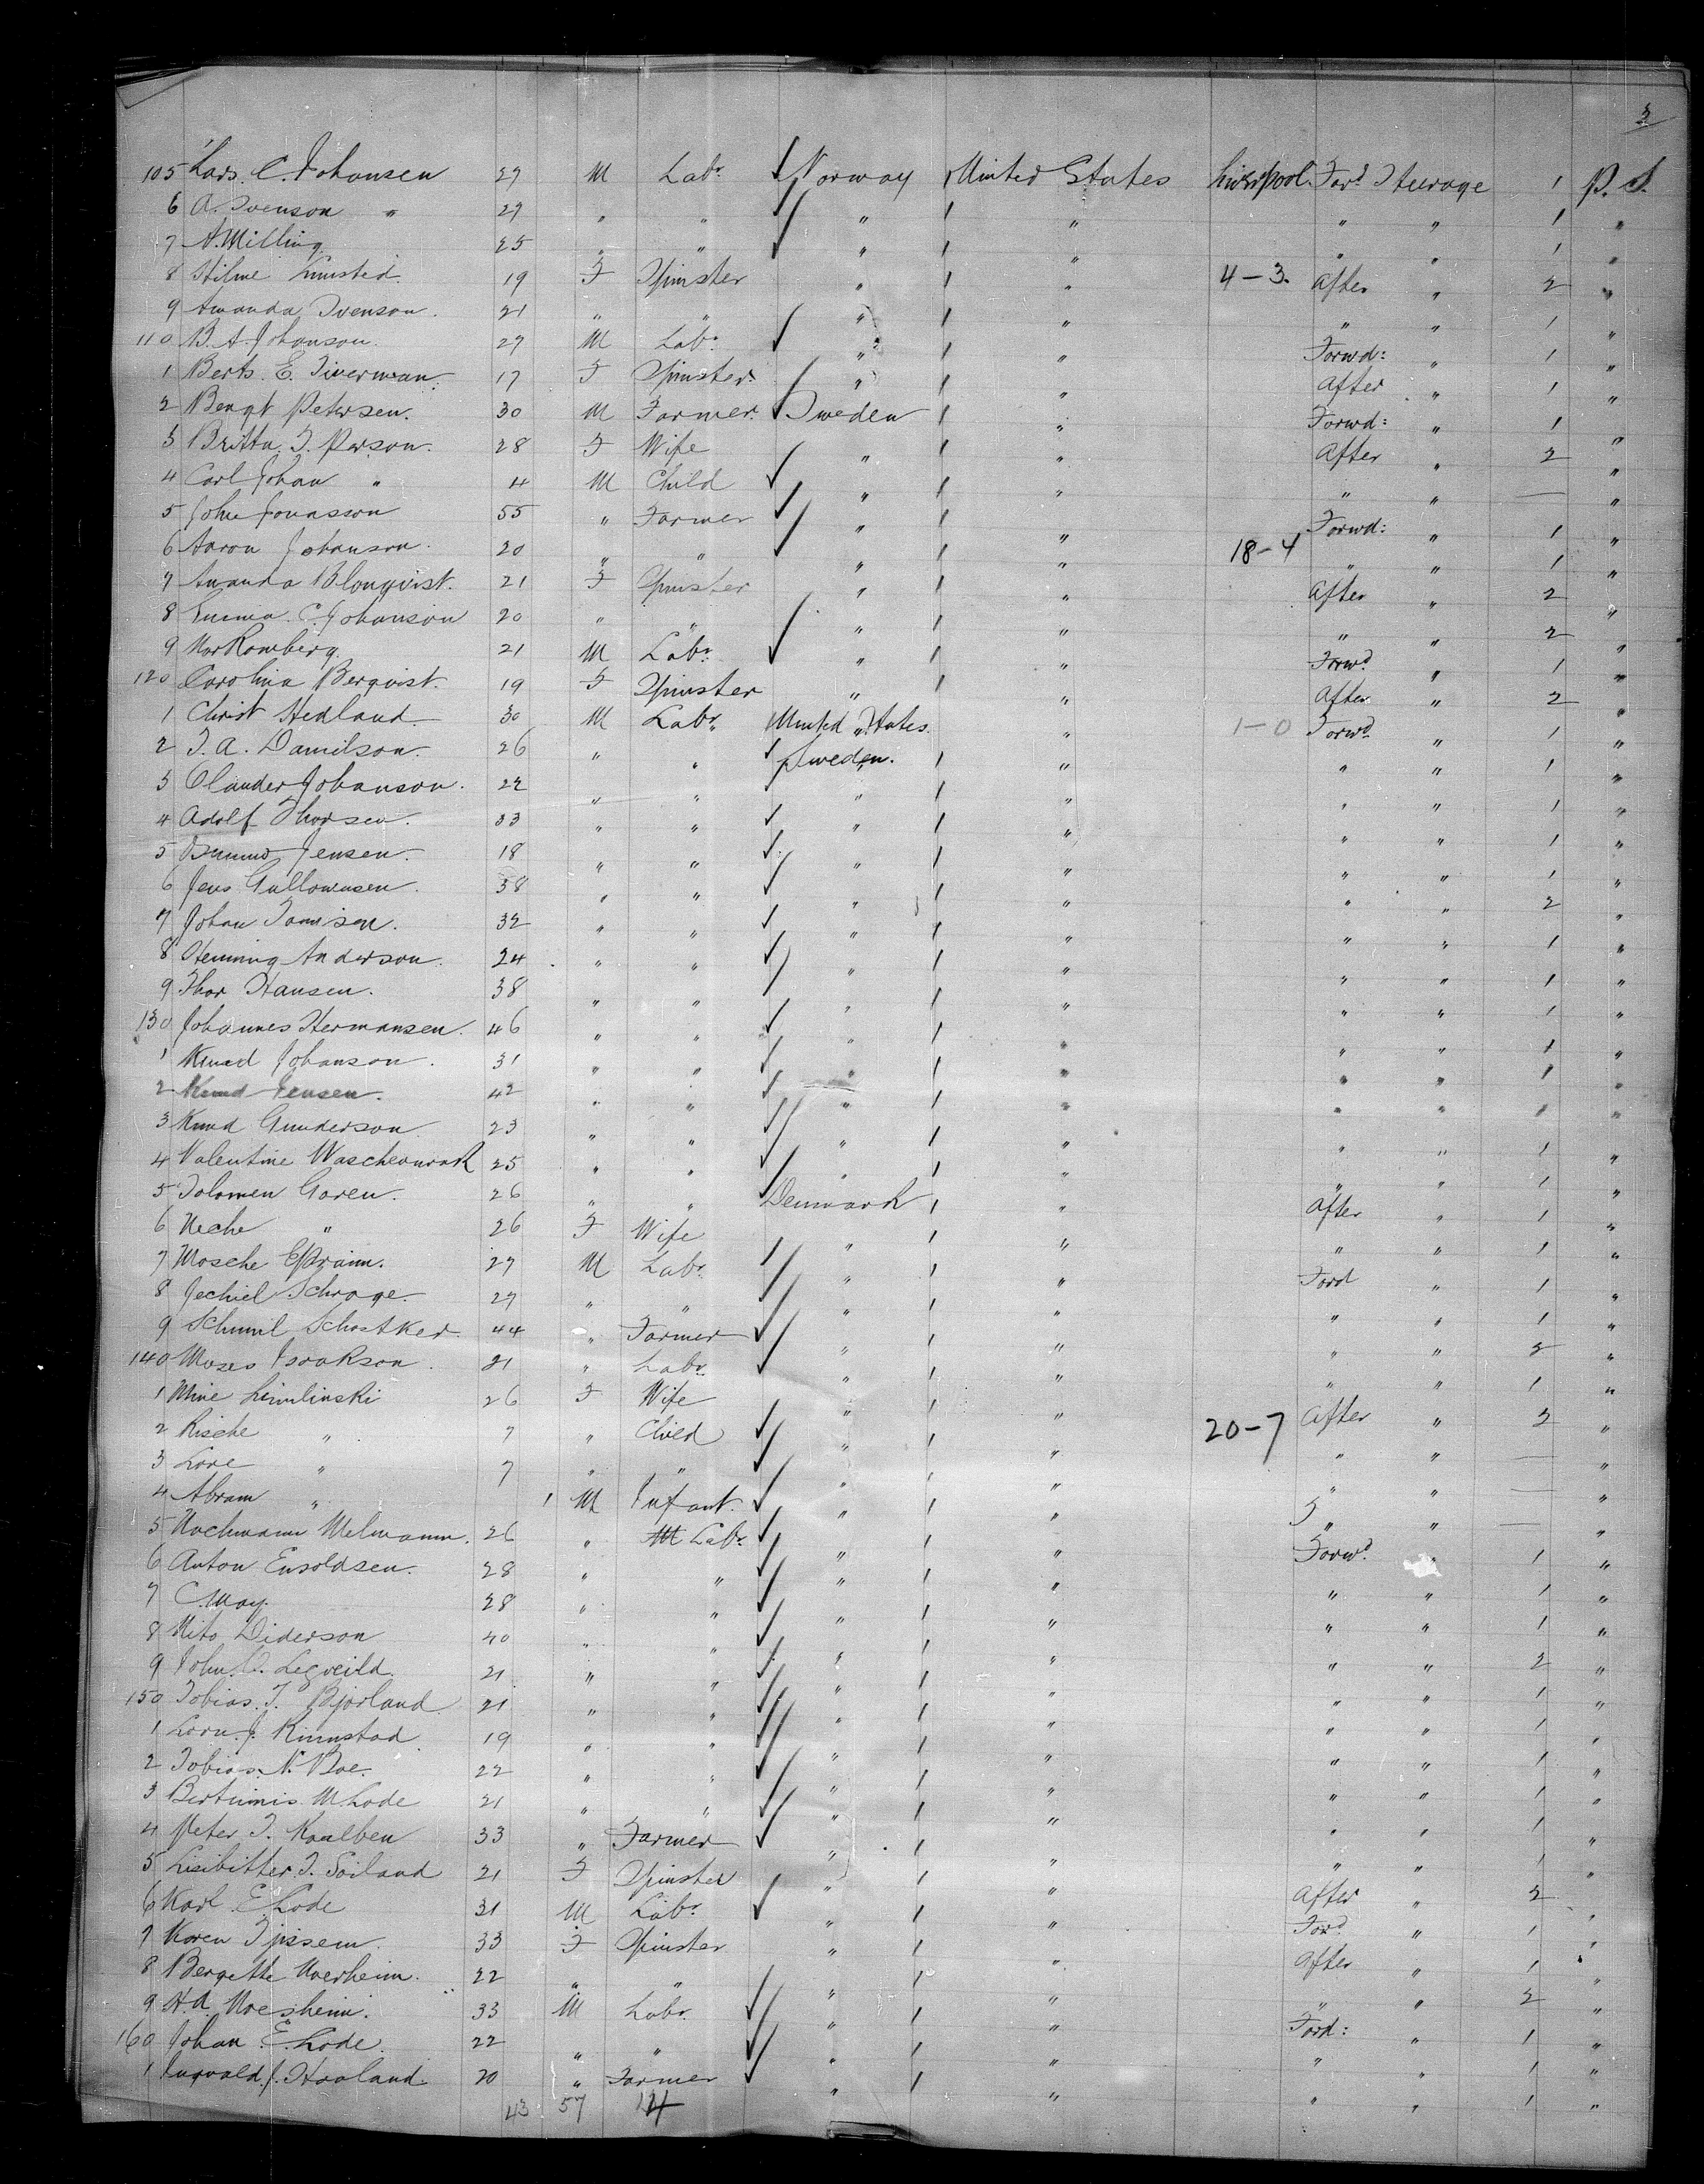 3
105 Lars. C. Johansen 27 M Labr. Norway United States Liverpool. Ford Steerage 1 P. S.
6 A. Svenson " 27 " " " " " " 1 "
7 A. Milling 25 " " " " " " 1 "
8 Hilme 19 F Spinster " " 4-3. After " 2 "
9 Amanda Svenson. 21 " " " " " " 1 "
110 B. A. Johanson. 27 M Labr. " " Forwd: " 1 "
1 Berts. E. Siverman. 17 F Spinster. " " After " 1 "
2 Bengt Petersen. 30 M Farmer. Sweden " Forwd: " 1 "
3 Britta. S. Person. 28 F Wife " " After " 2 "
4 Carl Johan " 4 M Child " " " " — "
5 John Jonasson 55 " Farmer " " Forwd: " 1 "
6 Aaron Johanson. 20 " " " " 18-4 " " 1 "
7 Amanda Blonqvist. 21 F Spinster " " After " 2 "
8 Emma. C. Johanson 20 " " " " " " 2 "
9 Romberg. 21 M Labr. " " Forwd. " 1 "
120 Carolina Berqvist. 19 F Spinster " " After " 2 "
1 Christ Hedland. 30 M Labr. United States. " 1-0 Forwd. " 1 "
2 J. A. Danilson. 26 " " Sweden. " " " 1 "
3 Olander Johanson. 22 " " " " " " 1 "
4 Adolf Thorsen. 33 " " " " " " 1 "
5 Jensen. 18 " " " " " " 1 "
6 Jens Gullownsen. 38 " " " " " " 2 "
7 Johan Tomisen. 32 " " " " " " 1 "
8 Henning Anderson. 24 " " " " " " 1 "
9 Thor Hansen. 38 " " " " " " 1 "
130 Johannes Hermansen. 46 " " " " " " 1 "
1 Knud Johanson. 31 " " " " " " 1 "
2 Knud Jensen. 42 " " " " " " " "
3 Knud Gunderson 23 " " " " " " 1 "
4 Valentine 25 " " " " " " 1 "
5 Solomen Goren. 26 " " Denmark " After " 1 "
6 Neche " 26 F Wife " " " " 1 "
7 Mosche Epraim. 27 M Labr. " " Ford " 1 "
8 Jechiel Schrage. 27 " " " " " " 1 "
9 Schmil Schostker. 44 " Farmer " " " " 2 "
140 Moses Israkson. 21 " Labr. " " " " 1 "
1 Mine Limlinski 26 F Wife " " 20-7 After " 2 "
2 Rische " 7 " Child " " " " — "
3 Lore " 7 " " " " " " — "
4 Abram " 1 M Infant. " " " " — "
5 Nochmann Melmann. 26 " M Labr. " " Forwd. " 1 "
6 Anton Ensoldsen. 28 " " " " " " 1 "
7 C. May. 28 " " " " " " 1 "
8 Nito Diderson 40 " " " " " " 2 "
9 John. O. Legveild. 21 " " " " " " 1 "
150 Tobias. T. Bjorland 21 " " " " " " 1 "
1 Lorn. J. Rinnstad 19 " " " " " " 1 "
2 Tobias. N. Boe. 22 " " " " " " 1 "
3 Bertumis. M Lode 21 " " " " " " 1 "
4 Peter T. Kaalben 33 " Farmer " " " " 1 "
5 Lisibitter. T. Soiland 21 F Spinster " " After " 2 "
6 Karl. E. Lode 31 M Labr. " " Ford " 1 "
7 Karen Tjissem. 33 F Spinster " " After " 1 "
8 Bergette Noerheim. 22 " " " " " " 2 "
9 H. A. Noesheim. 33 M Labr. " " Ford: " 1 "
160 Johan. E. Lode. 22 " " " " " " 1 "
1 Ingvald. J. Haaland. 20 " Farmer " " " " 1 "
43 57 14